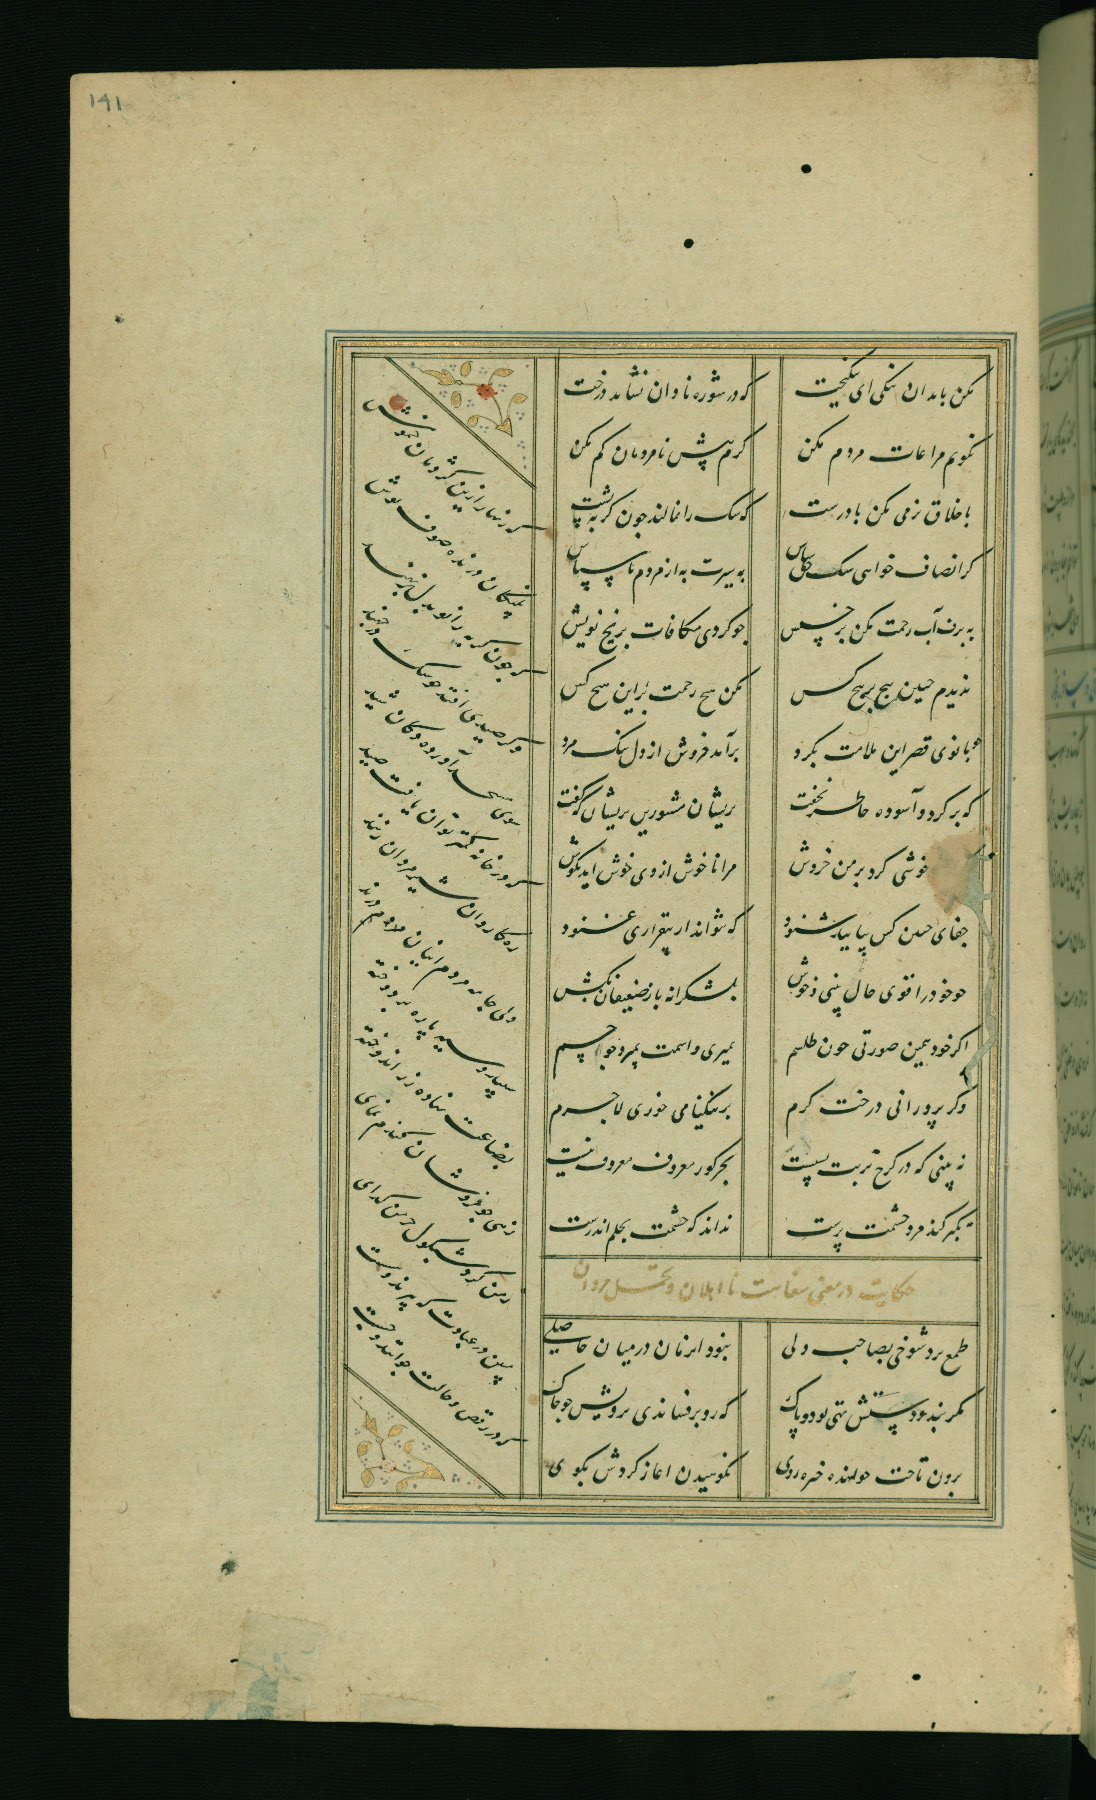 ۱۹۱
مکن با بدان نیکی ای نیکبخت
که در شوره نادان نشاند درخت
نگویم مراعات مردم مکن
کرم پیش نامردمان کم مکن
باخلاق نرمی مکن با درست
که سک را نمالند چون کربه پشت
کر انصاف خواهی سک حق شناس
به سیرت به از مردم ناسپاس
به برف آب رحمت مکن بر خسیس
چو کردی مکافات بر یخ نویس
ندیدم چنین پیچ بر پیچ کس
مکن هیچ رحمت براین هیچ کس
چو بانوی قصر این ملامت بکرد
برآمد خروش از دل نیک مرد
که برکرد و آسوده خاطر بخفت
پریشان مشو زین پریشان که گفت
خوشی کرد بر من خروش
مرا ناخوش از وی خوش آید بکوش
جفای چنین کس بباید شنود
که نتواند از بیقراری غنود
چو خود را قوی حال بینی و خوش
بشکرانه بار ضعیفان بکش
اکر خود همین صورتی چون طلسم
بمیری و اسمت بمیرد چو جسم
وکر پرورانی درخت کرم
بر نیکنامی خوری لاجرم
نه بینی که در کرخ تربت بسیست
بجز کور معروف معروف نیست
تکبر کند مرد حشمت پرست
نداند که حشمت بحلم اندرست
حکایت در معنی سفاهت نااهلان و تحمل مردان
طمع برد شوخی بصاحب دلی
نبود آن زمان در میان حاصلی
کمربند و دستش تهی بود و پاک
که زر برفشاندی برویش چو خاک
برون تاخت خواهنده خیره روی
نکوهیدن آغاز کردش بکوی
که زنهار ازین کژدمان خموش
پلنکان درنده صوف پوش
که چون کربه زانو بدل برنهند
وکر صیدی افتد چو سک در جهند
سوی مسجد آورده دکان شید
که در خانه کمتر توان یافت صید
ره کاروان شیرمردان زنند
ولی جامه مردم اینان درند
سپید و سیه پاره بر دوخته
بضاعت نهاده زر اندوخته
زهی جو فروشان کندم نمای
پس در عبادت که پیرند و سست
که در رقص و حالت جوانند و چست